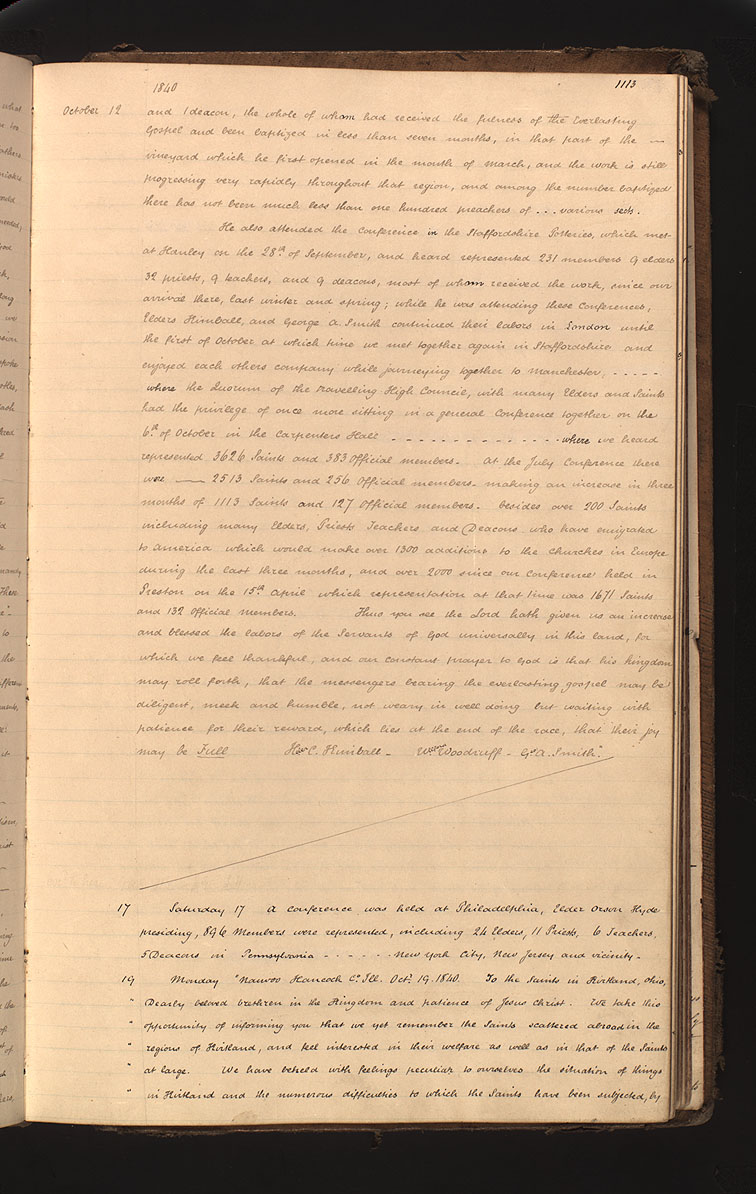 1840 1113
October 12 and 1 deacon, the whole of whom had received the fulness of the Everlasting
Gospel and been baptized in less than seven months, in that part of the —
vineyard which he first opened in the month of March, and the work is still
progressing very rapidly throughout that region, and among the number baptized
there has not been much less than one hundred preachers of . . . various sects.
He also attended the Conference in the Staffordshire Potteries, which met
at Hanley on the 28th of September, and heard represented 231 members 9 elders
32 priests, 9 teachers, and 9 deacons, most of whom received the work, since our
arrival there, last winter and spring; while he was attending these Conferences,
Elders Kimball, and George A. Smith continued their labors in London until
the first of October at which time we met together again in Staffordshire and
enjoyed each others company while journeying together to Manchester, - - - - -
where the Quorum of the travelling High Council, with many Elders and Saints
had the privilege of once more sitting in a general Conference together on the
6th of October in the Carpenters Hall - - - - - - - - - - - - - - where we heard
represented 3626 Saints and 383 Official members. At the July Conference there
were — 2513 Saints and 256 Official members. making an increase in three
months of 1113 Saints and 127 Official members. besides over 200 Saints
including many Elders, Priests Teachers and Deacons who have emigrated
to America which would make over 1300 additions to the churches in Europe
during the last three months, and over 2000 since our Conference held in
Preston on the 15th April which representation at that time was 1671 Saints
and 132 Official members. Thus you see the Lord hath given us an increase
and blessed the labors of the Servants of God universally in this land, for
which we feel thankful, and our constant prayer to God is that his kingdom
may roll forth, that the messengers bearing the everlasting gospel may be
diligent, meek and humble, not weary in well doing but waiting with
patience for their reward, which lies at the end of the race, that their joy
may be Full Heber C. Kimball - Wm Woodruff - Go A. Smith."
17 Saturday 17 A conference was held at Philadelphia, Elder Orson Hyde
presiding, 896 Members were represented, including 24 Elders, 11 Priests, 6 Teachers,
5 Deacons in Pennsylvania - - - - - - New York City, New Jersey and vicinity.
19 Monday "Nauvoo Hancock Co. Ill. Oct. 19. 1840. To the Saints in Kirtland, Ohio,
" Dearly beloved brethren in the Kingdom and patience of Jesus Christ. We take this
" opportunity of informing you that we yet remember the Saints scattered abroad in the
" regions of Kirtland, and feel interested in their welfare as well as in that of the Saints
" at large. We have beheld with feelings peculiar to ourselves the situation of things
" in Kirtland and the numerous difficulties to which the Saints have been subjected, by